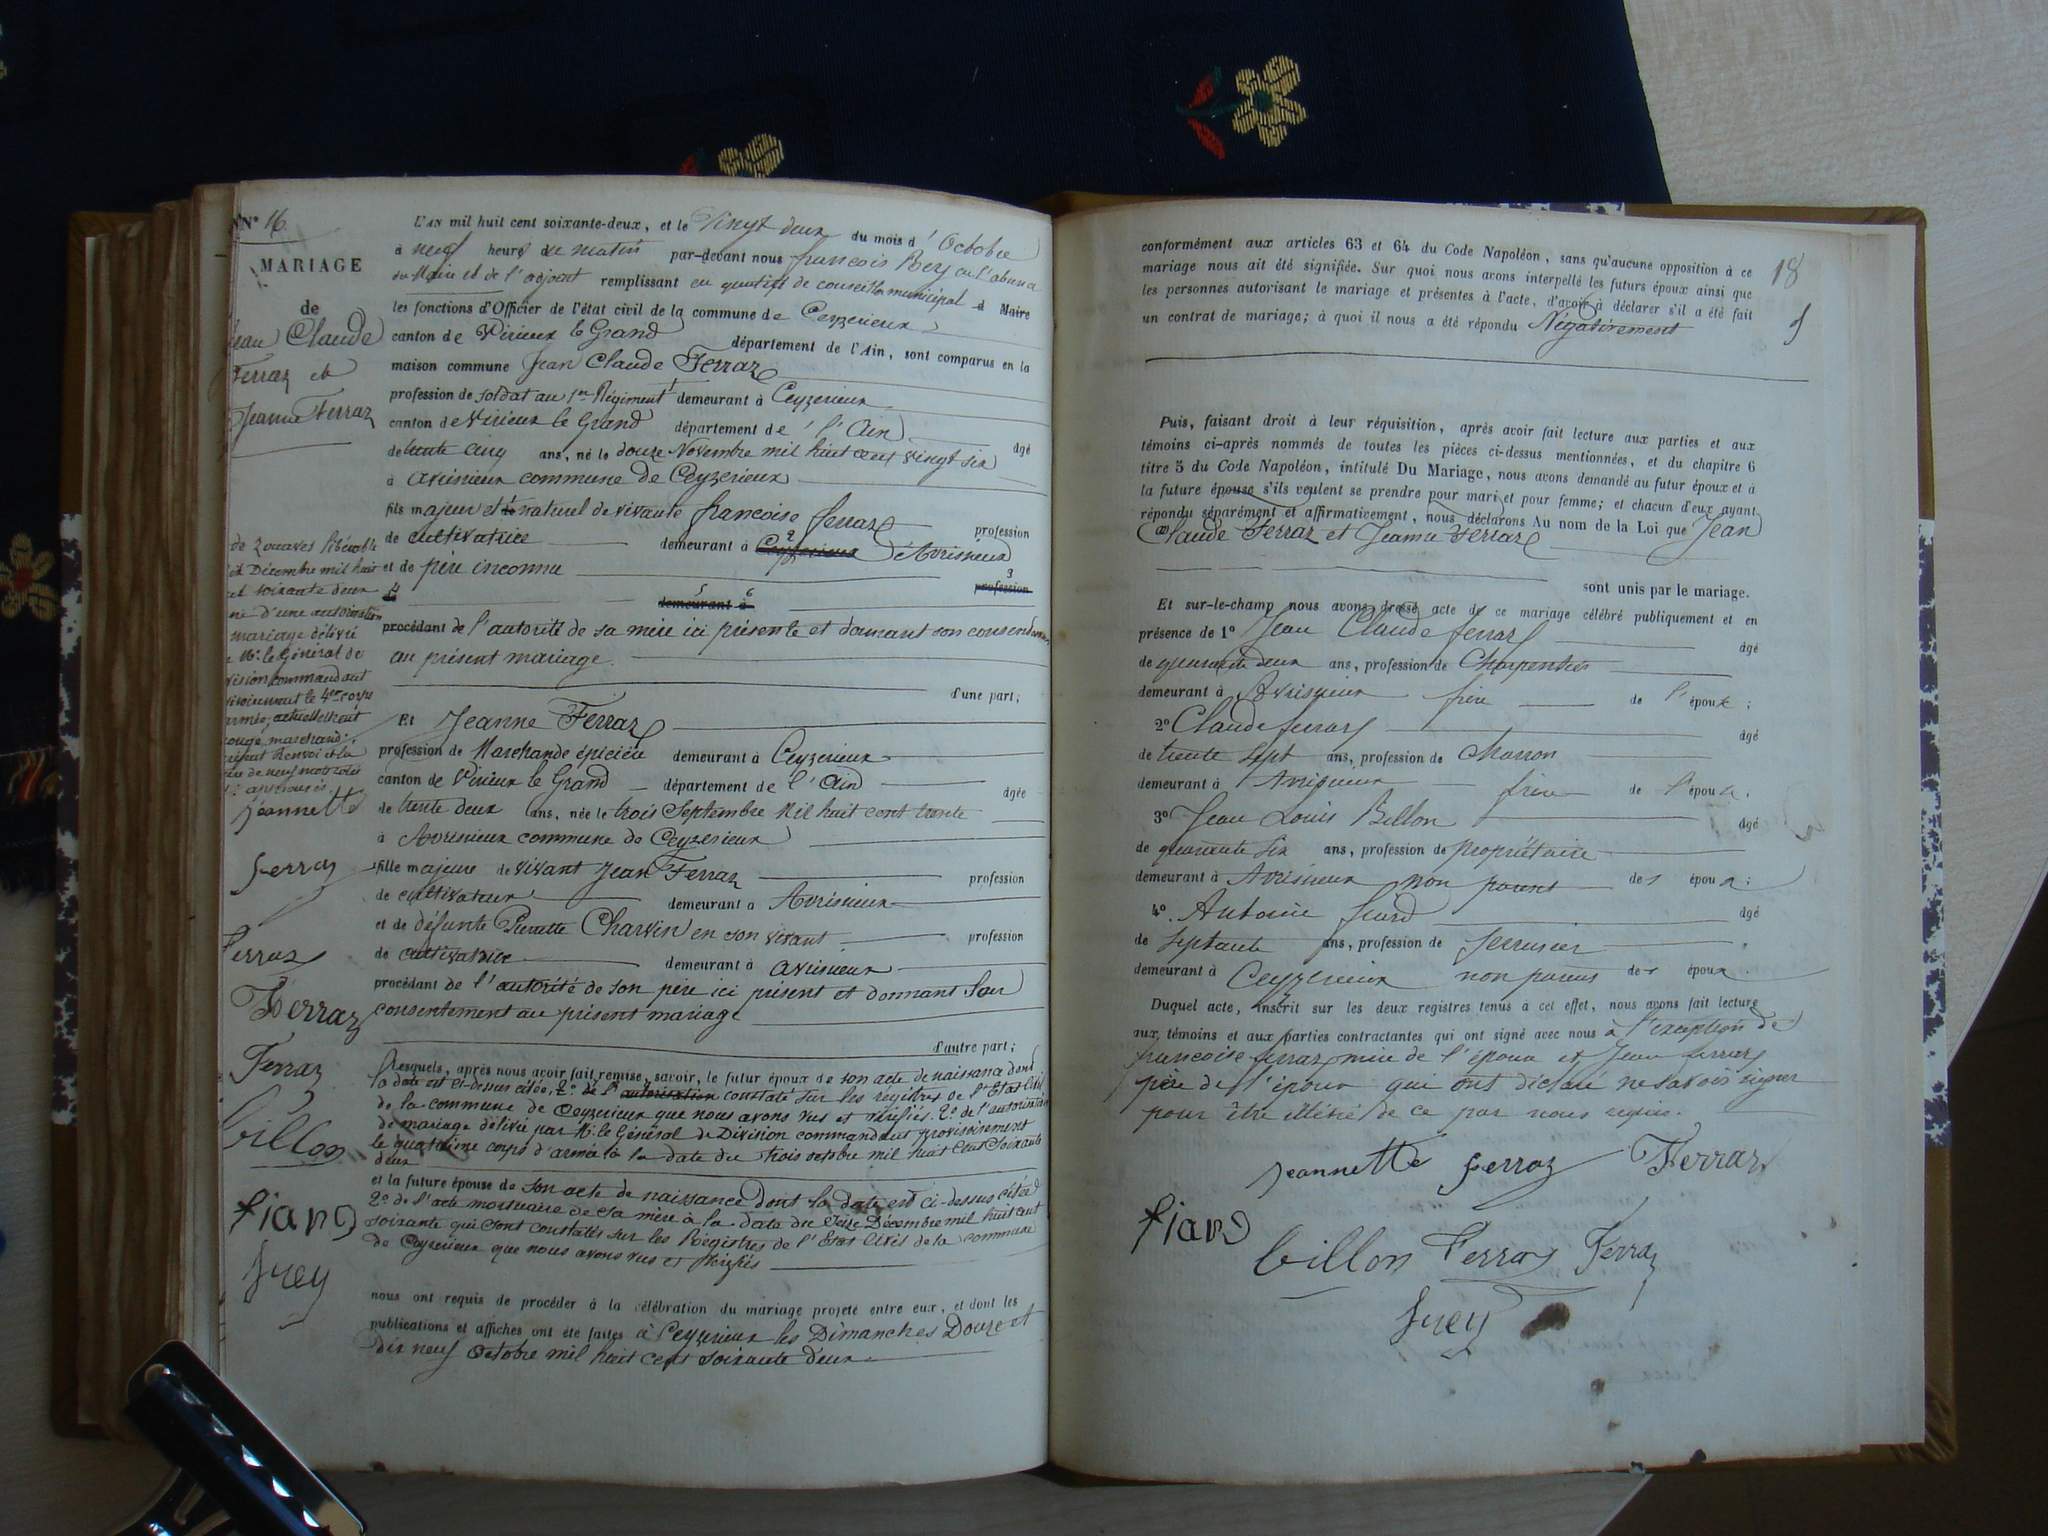 N° 16
MARIAGE
de
Jean Claude
Ferraz et
Jeanne Ferraz
L'AN mil huit cent soixante-deux, et le vingt deux du mois d'Octobre
à neuf heures du matin par-devant nous françois Rey en l'absence
du Maire et de l'adjoint remplissant en qualité de conseiller municipal d Maire
les fonctions d'Officier de l'état civil de la commune de Ceyzerieux
canton de Virieux le Grand département de l'Ain, sont comparus en la
maison commune Jean Claude Ferraz
profession de soldat au 1er Régiment demeurant à Ceyzerieux
canton de Virieux le Grand département de l'Ain âgé
de trente cinq ans, né le douze Novembre mil huit cent vingt six
à avrisieux commune de Ceyzerieux
fils majeur et naturel de vivante françoise ferraz profession
de cultivatrice demeurant à Ceyzerieux d'Avrisieux
et de père inconnu profession
demeurant à
procédant de l'autorité de sa mère ici présente et donnant son consentement
au présent mariage.
d'une part;
de zouaves libérable
Décembre mil huit
cent soixante deux
d'une autorisation
mariage délivré
Mr le Général de
division commandant
provisoirement le 4er corps
armée; actuellement
rouge marchand;
renvoi et la
de neuf mots rayés
approuvés.
Jeannette
ferraz
ferraz
Ferraz
Ferraz
billon
Fiard
frey
Et Jeanne Ferraz
profession de Marchande épicière demeurant à Ceyzerieux
canton de Virieux le Grand département de l'Ain âgée
de trente deux ans, née le trois Septembre Mil huit cent trente
à Avrisieux commune de Ceyzerieux
fille majeure de vivant Jean Ferraz profession
de cultivateur demeurant à Avrisieux
et de défunte Pierrette Charvin en son vivant profession
de cultivatrice demeurant à avrisieux
procédant de l'autorité de son père ici présent et donnant son
consentement au présent mariage
d'autre part;
Lesquels, après nous avoir fait remise, savoir, le futur époux de son acte de naissance dont
la date est ci-dessus citée, 2° de l' autorisation constaté sur les registres de l'Etat Civil
de la commune de Ceyzerieux que nous avons vus et vérifiés. 2° de l'autorisation
de mariage délivré par Mr. le Général de Division commandant provisoirement
le quatrième corps d'armée à la date du trois octobre mil huit cent soixante
deux
et la future épouse de son acte de naissance dont la date est ci-dessus citée
2° de l'acte mortuaire de sa mère à la date du Seize Décembre mil huit cent
soixante qui sont constatés sur les Registres de l'Etat Civil de la commune
de Ceyzerieux que nous avons vus et vérifiés
nous ont requis de procéder à la célébration du mariage projeté entre eux, et dont les
publications et affiches ont été faites à Ceyzerieux les Dimanches Douze et
Dix neuf Octobre mil huit cent soixante deux
18
conformément aux articles 63 et 64 du Code Napoléon, sans qu'aucune opposition à ce
mariage nous ait été signifiée. Sur quoi nous avons interpellé les futurs époux ainsi que
les personnes autorisant le mariage et présentes à l'acte, d'avoir à déclarer s'il a été fait
un contrat de mariage; à quoi il nous a été répondu Négativement
Puis, faisant droit à leur réquisition, après avoir fait lecture aux parties et aux
témoins ci-après nommés de toutes les pièces ci-dessus mentionnées, et du chapitre 6
titre 5 du Code Napoléon, intitulé Du Mariage, nous avons demandé au futur époux et à
la future épouse s'ils veulent se prendre pour mari et pour femme; et chacun d'eux ayant
répondu séparément et affirmativement, nous déclarons Au nom de la Loi que Jean
Claude Ferraz et Jeanne Ferraz
sont unis par le mariage.
Et sur-le-champ nous avons dressé acte de ce mariage célébré publiquement et en
présence de 1° Jean Claude ferraz âgé
de quarante deux ans, profession de Charpentier
demeurant à Avrisieux frère de l'époux;
2° Claude ferraz âgé
de trente sept ans, profession de Charron
demeurant à Avrisieux frère de l'époux.
3° Jean Louis Billon âgé
de quarante six ans, profession de propriétaire
demeurant à Avrisieux non parent des époux;
4°. Antoine fiard âgé
de septante ans, profession de serrurier
demeurant à Ceyzerieux non parens des époux.
Duquel acte, inscrit sur les deux registres tenus à cet effet, nous avons fait lecture
aux témoins et aux parties contractantes qui ont signé avec nous à l'exception de
francoise ferraz mère de l'époux et Jean ferraz
père de l'épouse qui ont déclaré ne savoir signer
pour être illétré de ce par nous requis.
Jeannette ferraz Ferraz
Fiard
billon ferraz Ferraz
frey